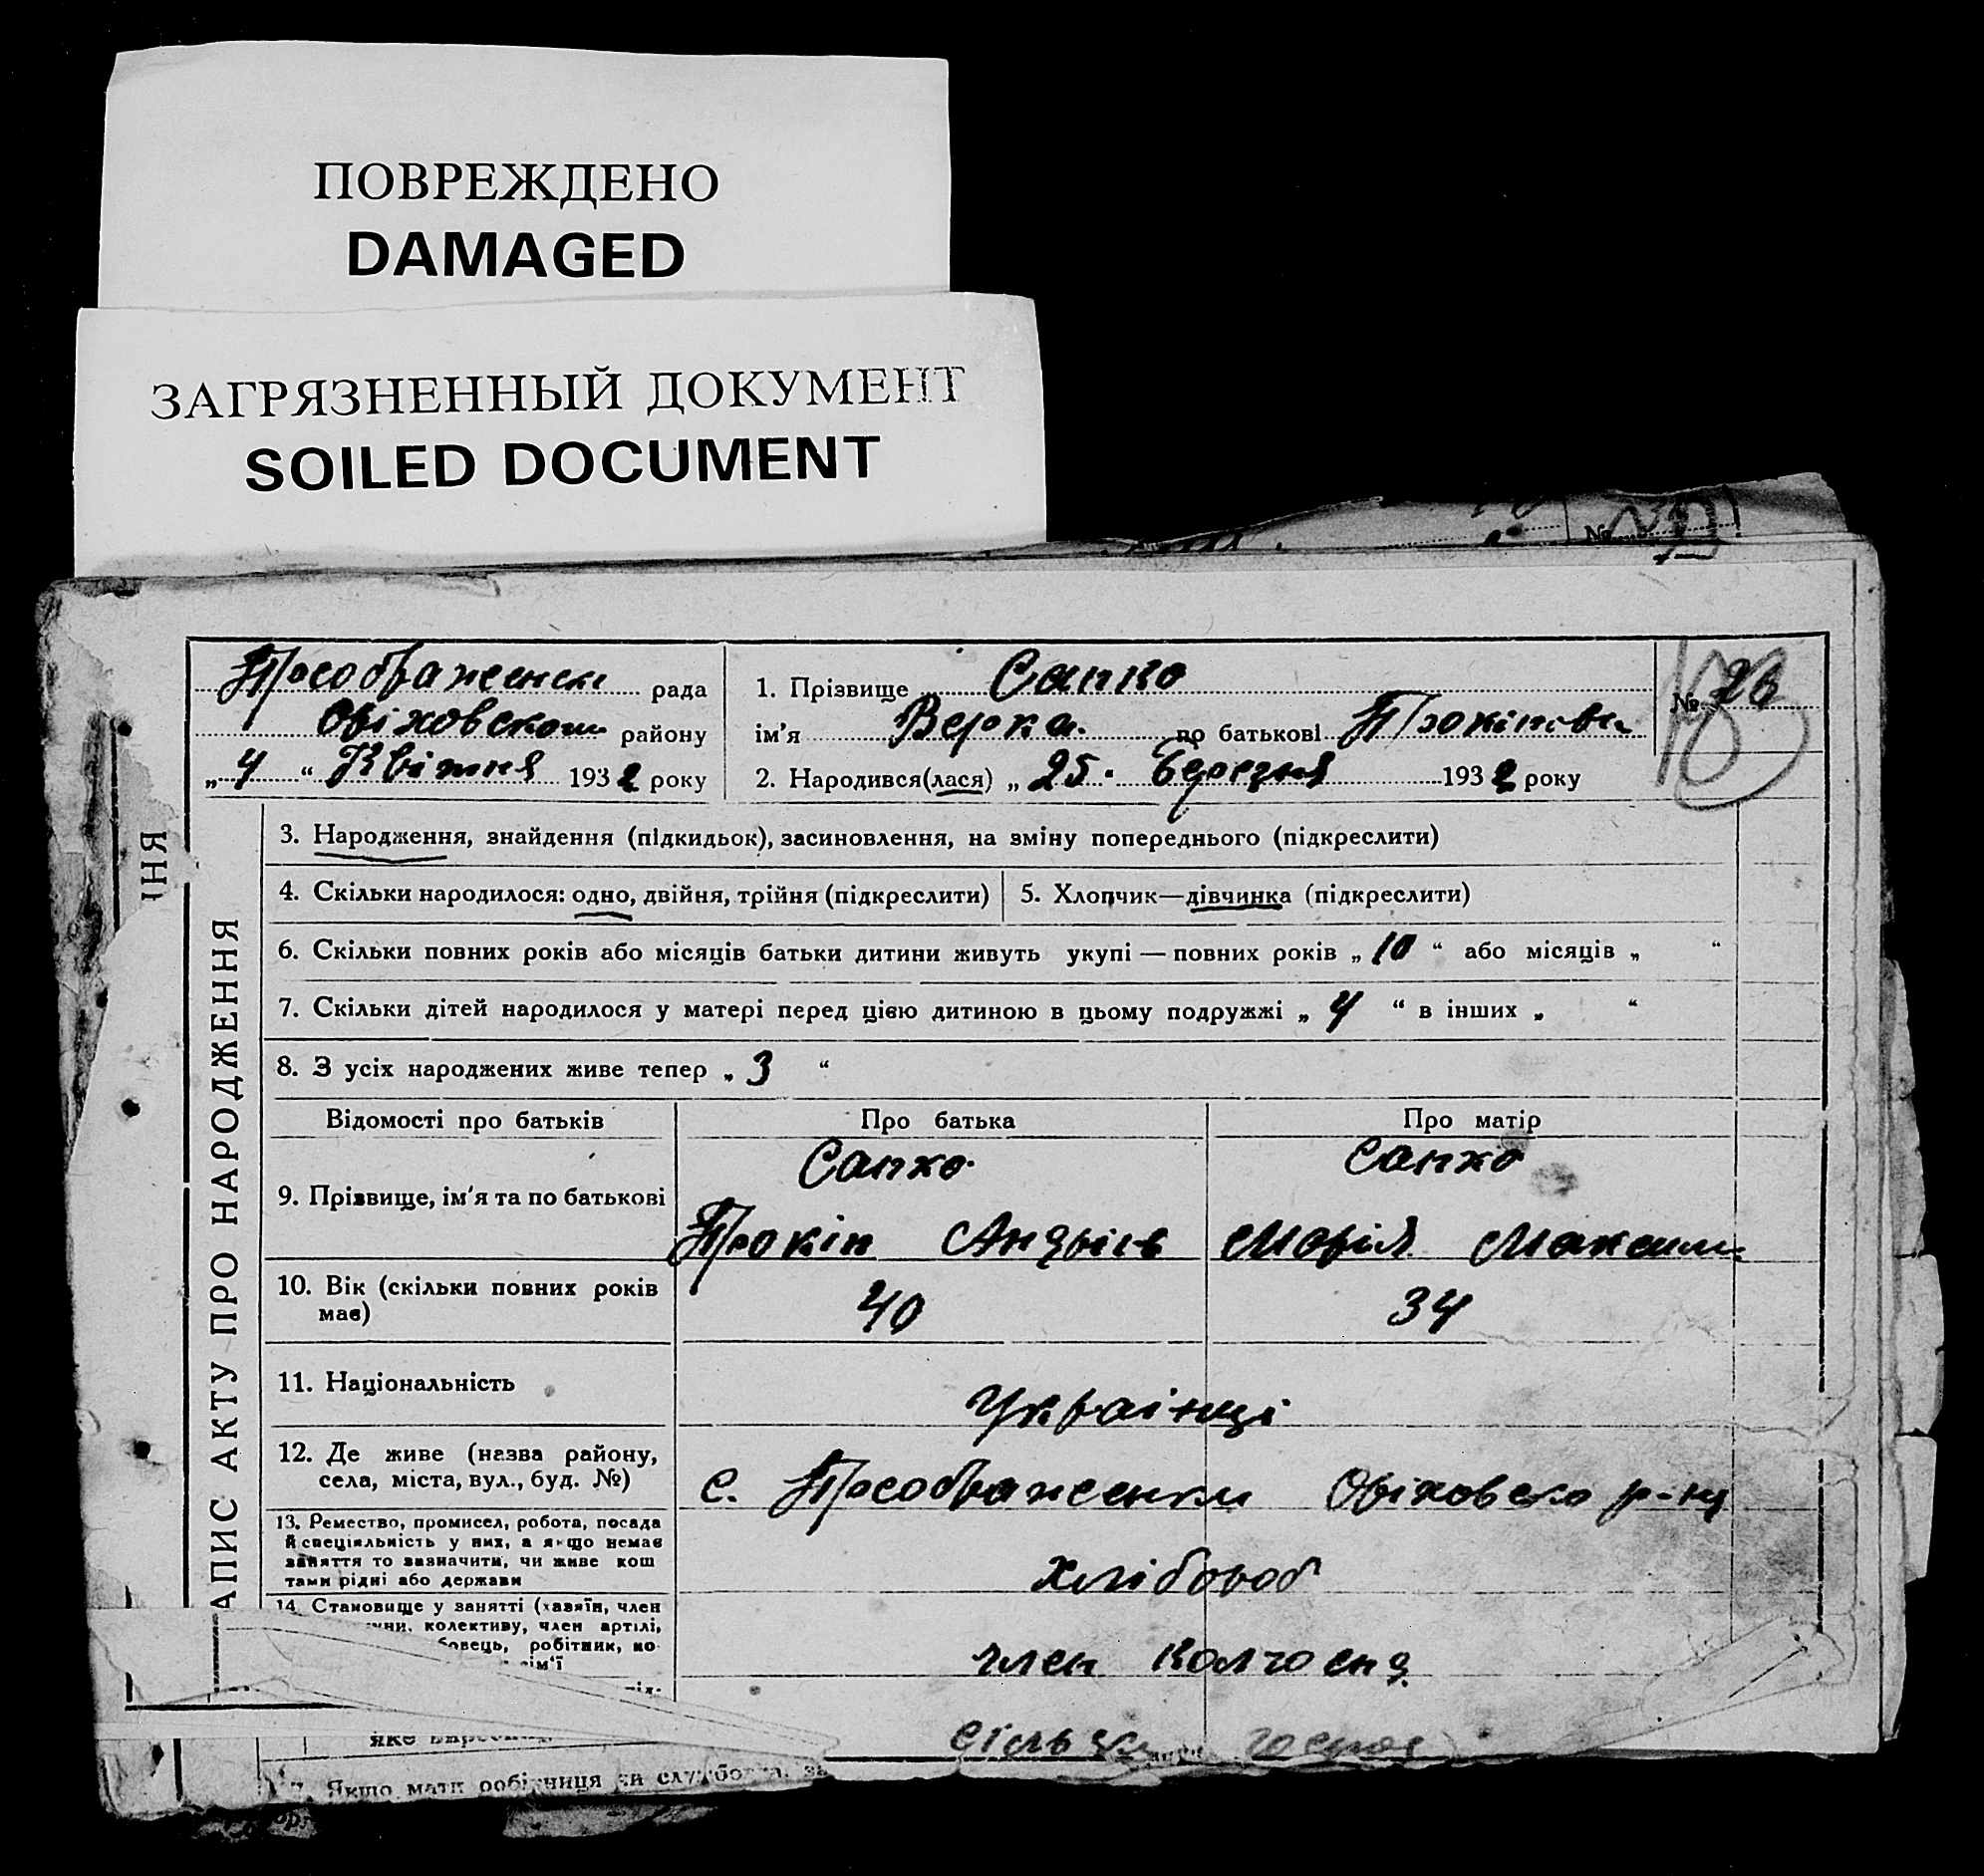 ПОВРЕЖДЕНО
DAMAGED
ЗАГРЯЗНЕННЫЙ ДОКУМЕНТ
SOILED DOCUMENT
№
ІННЯ
ЗАПИС АКТУ ПРО НАРОДЖЕННЯ
Преображенськ рада
Оріховском району
„ 4 “ Квітня 1932 року
1. Прізвище Сапко
ім'я Верка. по батькові Прокіповн
2. Народився(лася) „ 25. Березня 1932 року
№ 26
3. Народження, знайдення (підкидьок), засиновлення, на зміну попереднього (підкреслити)
4. Скільки народилося: одно, двійня, трійня (підкреслити)
5. Хлопчик—дівчинка (підкреслити)
6. Скільки повних років або місяців батьки дитини живуть укупі — повних років „ 10 “ або місяців „ “
7. Скільки дітей народилося у матері перед цією дитиною в цьому подружжі „ 4 “ в інших „ “
8. З усіх народжених живе тепер „ 3 “
Відомості про батьків
Про батька
Про матір
9. Прізвище, ім'я та по батькові
Сапко
Прокіп Андрієв
Сапко
Марія Максим
10. Вік (скільки повних років
має)
40
34
11. Національність
Українці
12. Де живе (назва району,
села, міста, вул., буд. №)
с. Преображенки Оріховско р-ну
13. Ремество, промисел, робота, посада
й спеціяльність у них, а якщо немає
заняття то зазначити, чи живе кош
тами рідні або держави
хлібороб
14. Становище у занятті (хазяїн, член
колективу, член артілі,
робітник,
член колгоспа
сільськ господ
7. Якщо мати робітниця чи службовка,